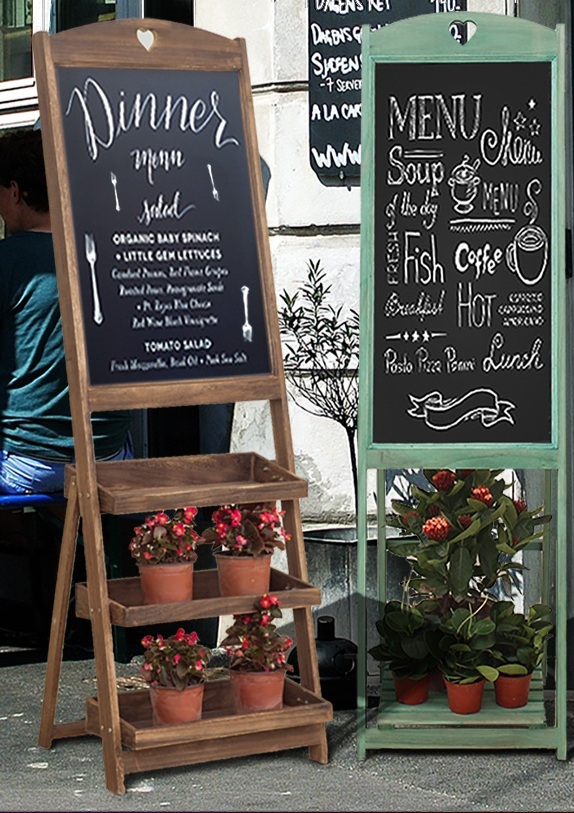 Dinner
menu
salad
ORGANIC BABY SPINACH
+ LITTLE GEM LETTUCES
Candied Pecans, Red Flame Grapes
Roasted Pears, Pomegranate Seeds
+ Pt. Reyes Blue Cheese
Red Wine Black Vinaigrette
TOMATO SALAD
Fresh Mozzarella, Basil Oil + Pork Sea Salt
DAGENS RET 140,-
DAGENS
- 7 SERVE
A LA CAR
WWW
MENU
Menu
Soup
of the day
MENU
FRESH
Fish
Coffee
Breakfast
HOT
ESPRESSO
CAPPUCCINO
AMERICANO
Pasta Pizza Panini Lunch